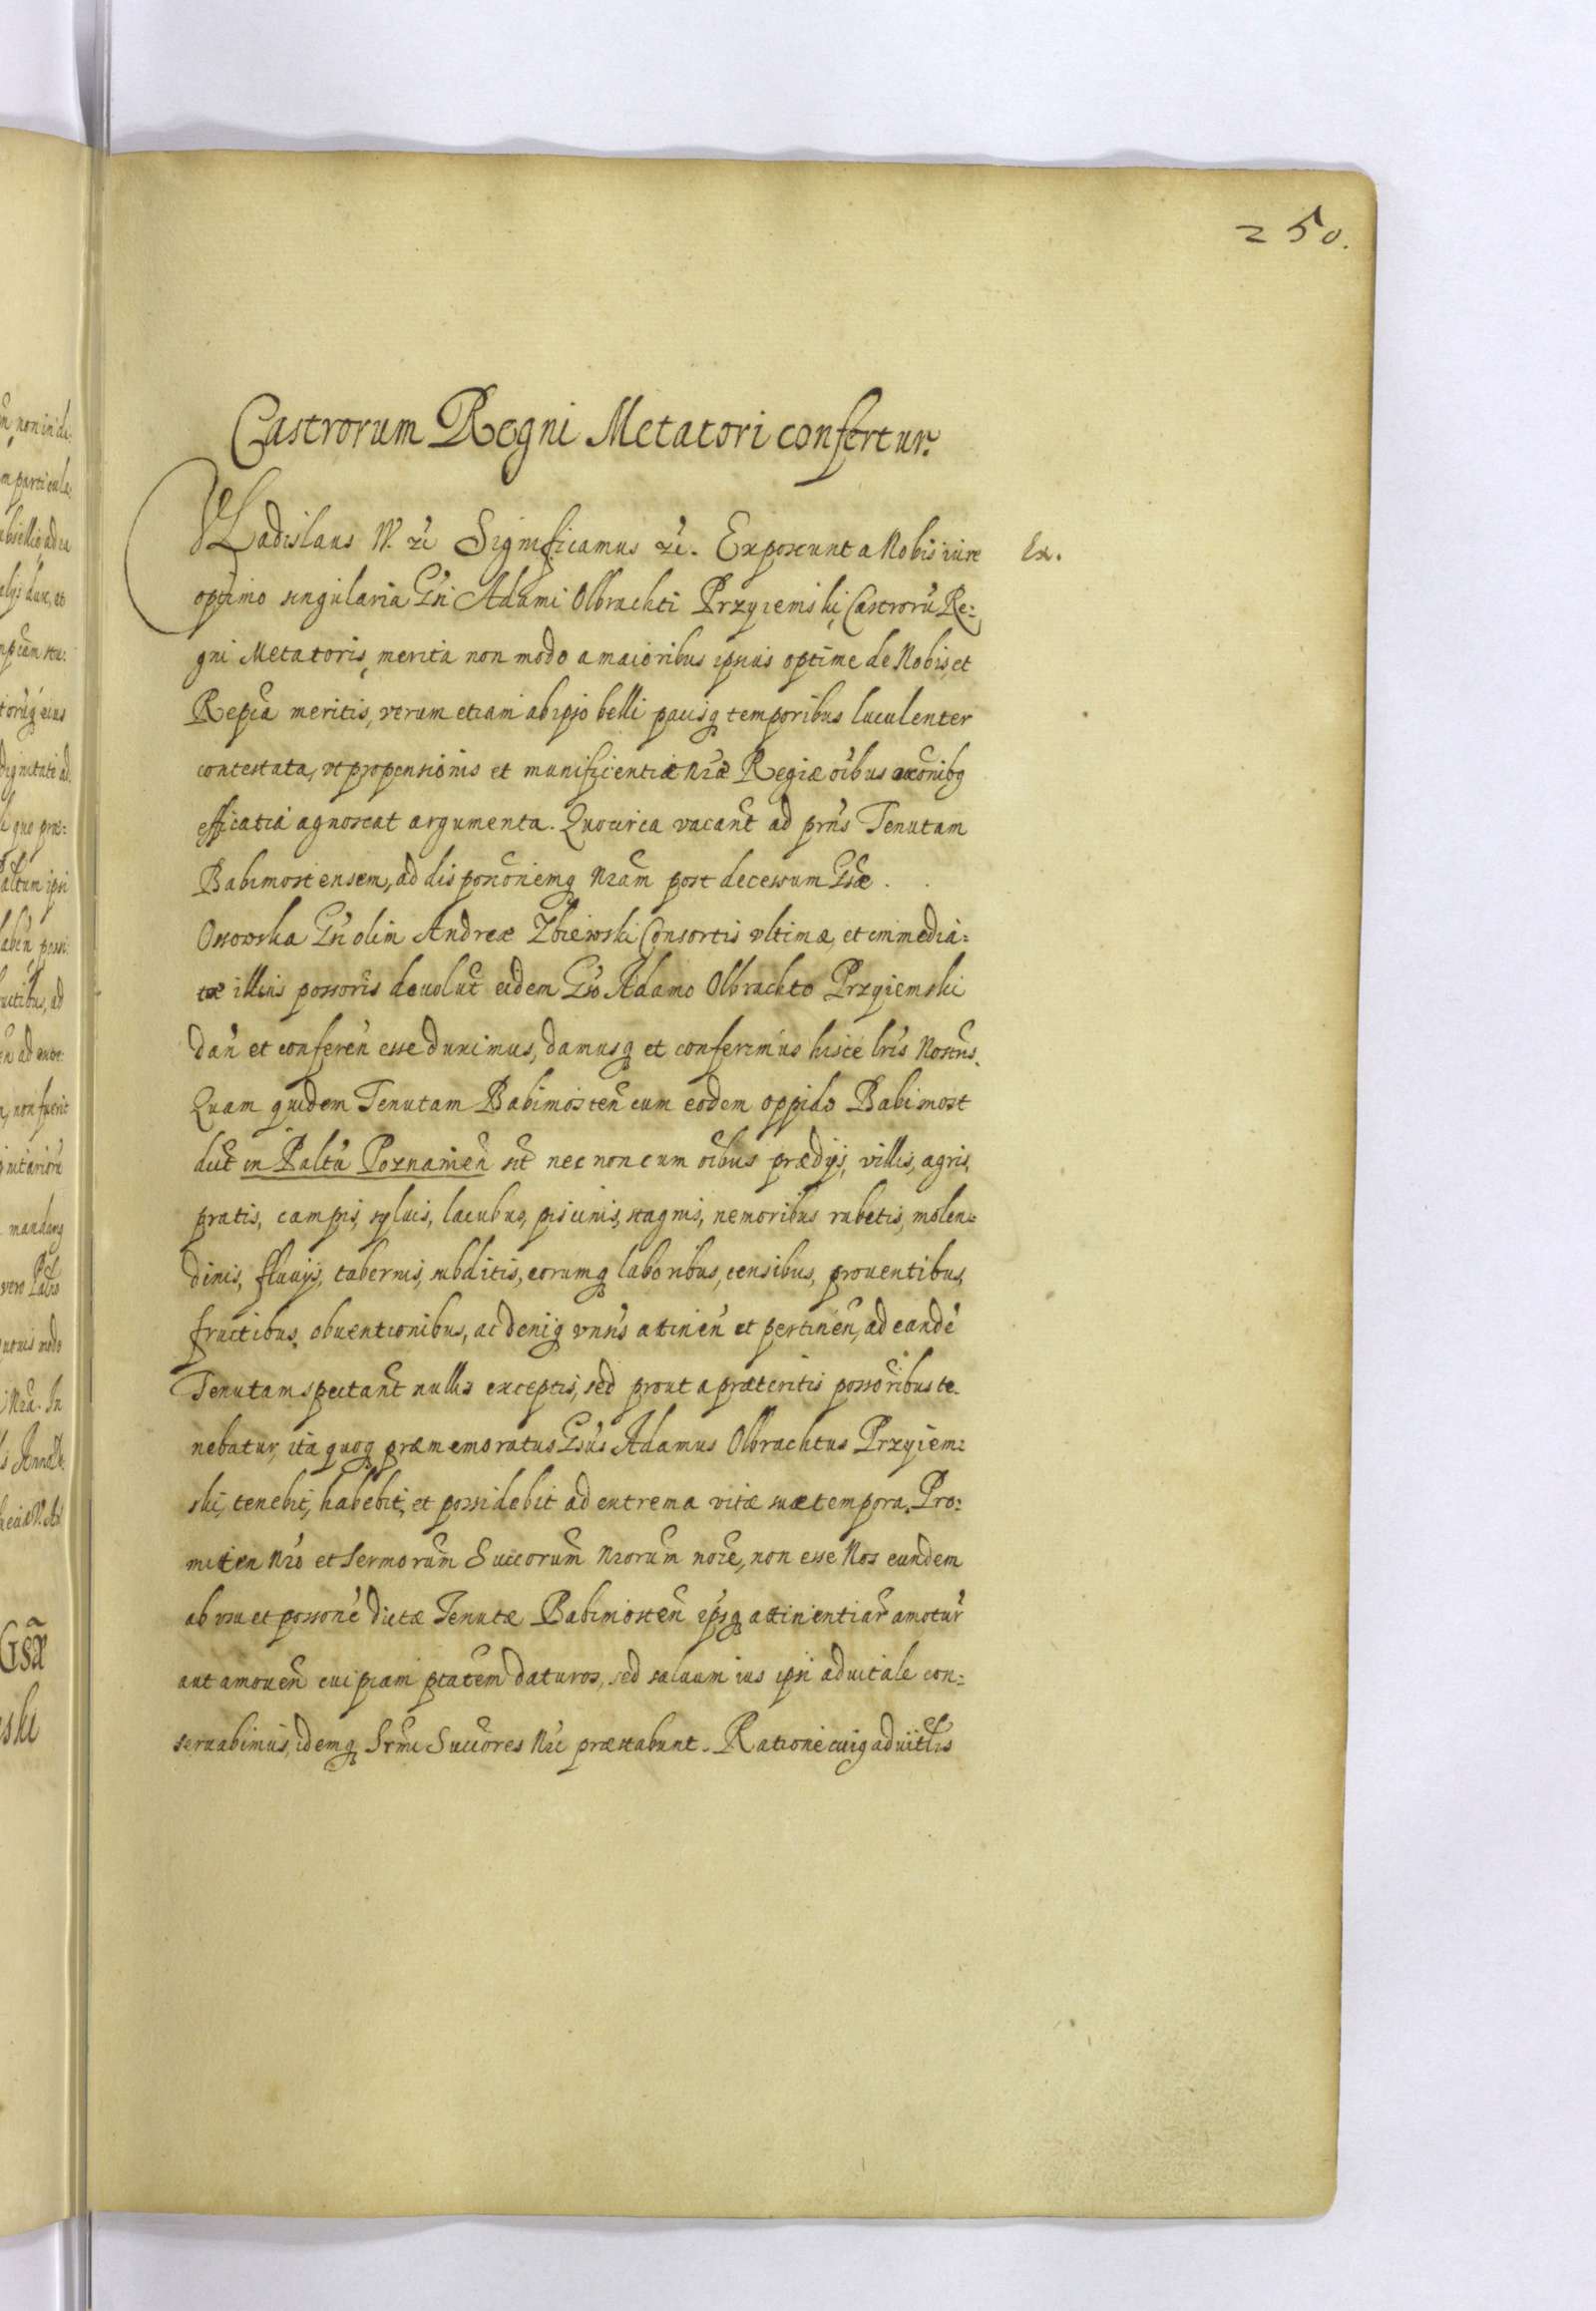 250.
Castrorum Regni Metatori confertur.
VLadislaus IV. &c̃ Significamus &c̃. Exposcunt a Nobis iure
Ex.
optimo singularia Gsi Adami Olbrachti Przyiemski, Castrorũ Re:
gni Metatoris, merita non modo a maioribus ipsius optime de Nobis, et
Repca meritis, verum etiam ab ipso belli pacisq temporibus luculenter
contestata, vt propensionis et munificentiæ nrae Regiæ oĩbus
efficatia agnoscat argumenta. Quocirca vacant̃ ad prñs Tenutam
Babimostensem, ad disponẽmq nr̃am post decessum Gsæ . .
Ossowska Gsi olim Andreæ Zbiewski Consortis vltimæ, et immedia:
tæ illius possoris deuolut̃ eidem Gso Adamo Olbrachto Przyiemski
dañ et confereñ esse duximus, damusq et conferimus hisce lr̃is Nostris.
Quam quidem Tenutam Babimosteñ cum eodem oppido Babimost
dict̃ in Paltũ Poznanieñ sit̃ nec non cum oĩbus prædijs, villis, agris,
pratis, campis, syluis, lacubus, piscinis, stagnis, nemoribus rubetis, molen:
dinis, fluuijs, tabernis, subditis, eorumq laboribus, censibus, prouentibus,
fructibus, obuentionibus, ac deniq vnñs attineñ et pertineñ, ad eandẽ
Tenutam spectant̃ nullis exceptis, sed prout a præteritis possoribus te:
nebatur, ita quoq præmemoratus Gsus Adamus Olbrachtus Przyiem:
ski, tenebit, habebit, et possidebit ad extrema vitæ suæ tempora. Pro:
mitteñ nr̃o et Sermorum Succorum nrorum noĩe, non esse Nos eundem
ab vsu et possonẽ dictæ Tenutæ Babimosteñ eiusq attinentiar̃ amotur̃
aut amoueñ cuipiam ptatem daturos, sed saluum ius ipsi aduitale con:
seruabimus, idemq Srmi Succores Nri præstabunt. Ratione cuiq aduitlis